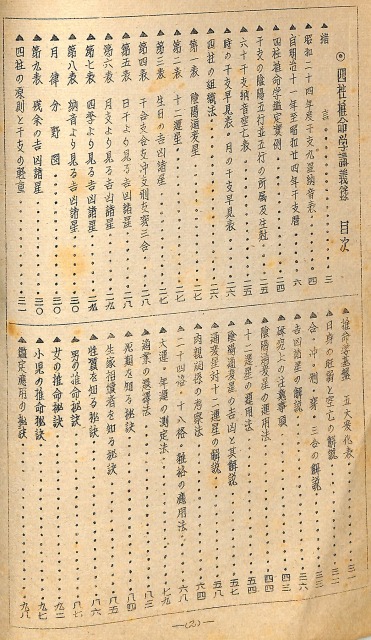 ◎四柱推命学講義録　目次
▲緒　言　三
▲昭和二十四年度干支九星納音表　四
▲自明治十一年至昭和廿四年干支暦　六
▲四柱推命学鑑定実例　二四
▲干支の陰陽五行並五行の所属及生尅　二五
▲六十干支納音空亡表　二五
▲時の干支早見表・月の干支早見表　二六
▲四柱の組織法　二六
▲第一表　陰陽通変星　二七
▲第二表　十二運星　二七
▲第三表　生日の吉凶諸星　二七
▲第四表　干合支合支冲支刑支害三合　二八
▲第五表　日干より見る吉凶諸星　二八
▲第六表　月支より見る吉凶諸星　二八
▲第七表　四季より見る吉凶諸星　二九
▲第八表　納音より見る吉凶諸星　三〇
▲月律分野図　三〇
▲第九表　残余の吉凶諸星　三〇
▲四柱の原則と干支の軽重　三一
▲推命学基盤　五大変化表　三一
▲日府の旺弱と空亡の解説　三二
▲合・冲・刑・害・三合の解説　三三
▲吉凶諸星の解説　三六
▲研究上の注意事項　四三
▲陰陽通変星の運用法　四四
▲十二運星の運用法　五四
▲陰陽通変星の吉凶と其解説　五七
▲通変星対十二運星の解説　五八
▲六親姻係の考察法　六四
▲二十四格・十八格・雑格の応用法　六八
▲大運　年運の測定法　七九
▲適業の選択法　八三
▲死期を知る秘訣　八四
▲生家相続者を知る秘訣　八五
▲性質を知る秘訣　八六
▲男の推命秘訣　八七
▲女の推命秘訣　九二
▲小児の推命秘訣　九七
▲鑑定応用の秘訣　九八
—(2)—